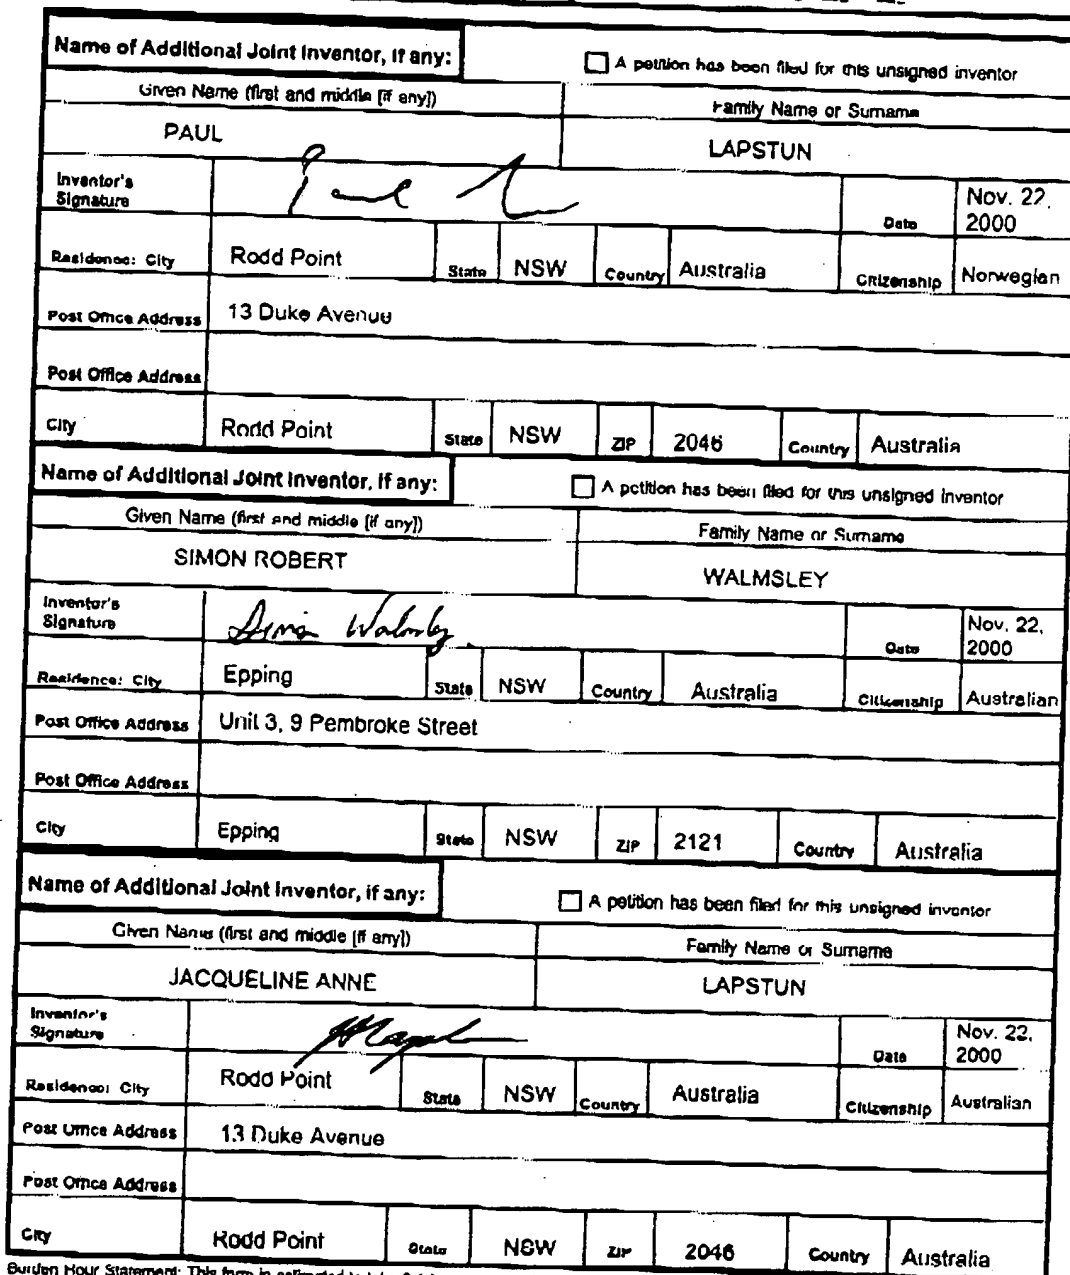 Name of Additional Joint Inventor, if any:
A petition has been filed for this unsigned inventor
Given Name (first and middle [if any])
Family Name or Surname
PAUL
LAPSTUN
Inventor's
Signature
Date
Nov. 22,
2000
Residence: City
Rodd Point
State
NSW
Country
Australia
Citizenship
Norwegian
Post Office Address
13 Duke Avenue
Post Office Address
City
Rodd Point
State
NSW
ZIP
2046
Country
Australia
Name of Additional Joint Inventor, if any:
A petition has been filed for this unsigned inventor
Given Name (first and middle [if any])
Family Name or Surname
SIMON ROBERT
WALMSLEY
Inventor's
Signature
Simon Walmsley
Date
Nov. 22,
2000
Residence: City
Epping
State
NSW
Country
Australia
Citizenship
Australian
Post Office Address
Unit 3, 9 Pembroke Street
Post Office Address
City
Epping
State
NSW
ZIP
2121
Country
Australia
Name of Additional Joint Inventor, if any:
A petition has been filed for this unsigned inventor
Given Name (first and middle [if any])
Family Name or Surname
JACQUELINE ANNE
LAPSTUN
Inventor's
Signature
Date
Nov. 22,
2000
Residence: City
Rodd Point
State
NSW
Country
Australia
Citizenship
Australian
Post Office Address
13 Duke Avenue
Post Office Address
City
Rodd Point
State
NSW
ZIP
2046
Country
Australia
Burden Hour Statement: This form is estimated to